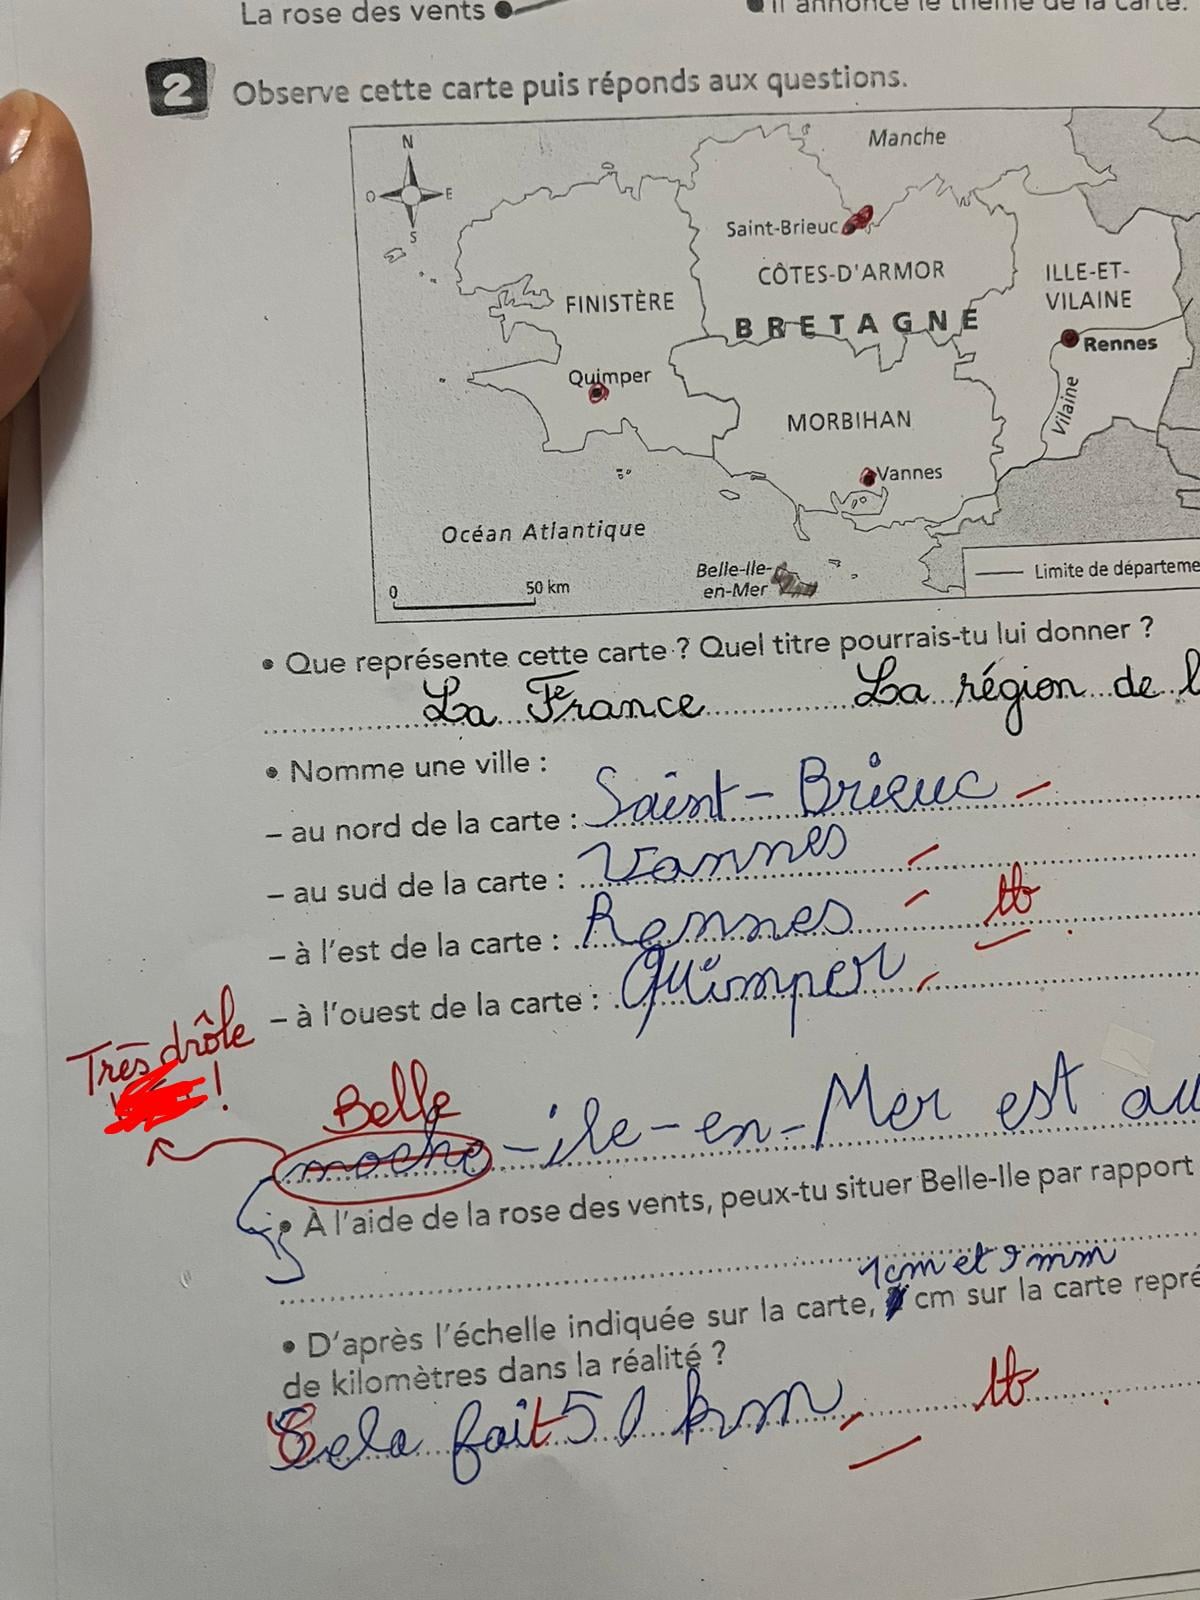 La rose des vents
Il annonce le thème de la carte.
2 Observe cette carte puis réponds aux questions.
N
O E
S
Manche
Saint-Brieuc
CÔTES-D'ARMOR
ILLE-ET-
VILAINE
FINISTÈRE
BRETAGNE
Rennes
Quimper
MORBIHAN
Vilaine
Vannes
Océan Atlantique
Belle-Ile-
en-Mer
0 50 km
Limite de départeme
• Que représente cette carte ? Quel titre pourrais-tu lui donner ?
La France La région de l
• Nomme une ville :
– au nord de la carte : Saint-Brieuc
– au sud de la carte : Vannes
– à l'est de la carte : Rennes tb
– à l'ouest de la carte : Quimper
Très drôle
!
Belle
moche-ile-en-Mer est au
• À l'aide de la rose des vents, peux-tu situer Belle-Ile par rapport
1 cm et 9 mm
• D'après l'échelle indiquée sur la carte, cm sur la carte repré
de kilomètres dans la réalité ?
Cela fait 50 km tb